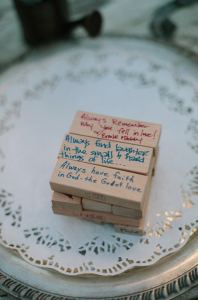 Always Remember
Why you fell in love!
Always find laughter
in the small & hard
things of life...
Always have faith
in God - the God of love